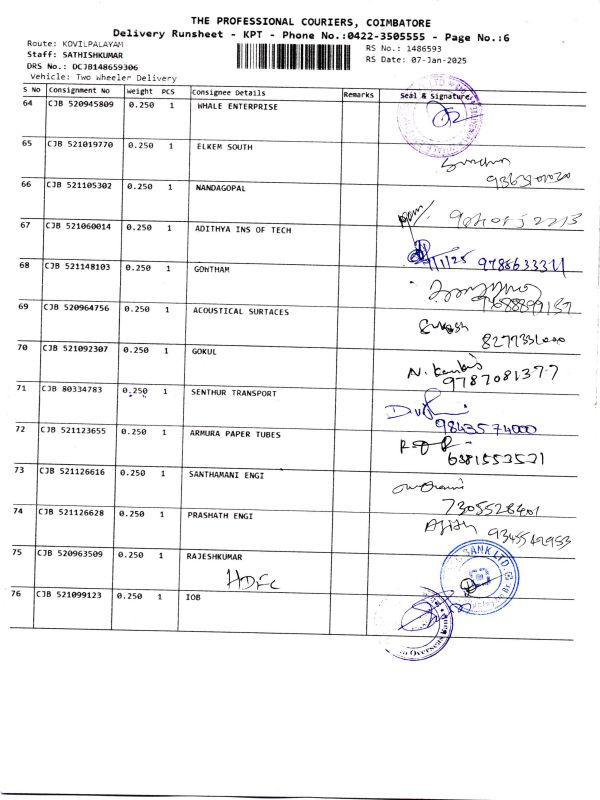 THE PROFESSIONAL COURIERS, COIMBATORE
Delivery Runsheet - KPT - Phone No.:0422-3505555 - Page No.:6
Route: KOVILPALAYAM
RS No.: 1486593
Staff: SATHISHKUMAR
RS Date: 07-Jan-2025
DRS No.: DCJB148659306
Vehicle: Two Wheeler Delivery
S No Consignment No Weight PCS Consignee Details Remarks Seal & Signature
64 CJB 520945809 0.250 1 WHALE ENTERPRISE
65 CJB 521019770 0.250 1 ELKEM SOUTH
66 CJB 521105302 0.250 1 NANDAGOPAL
67 CJB 521060014 0.250 1 ADITHYA INS OF TECH
9788633311
68 CJB 521148103 0.250 1 GONTHAM
69 CJB 520964756 0.250 1 ACOUSTICAL SURTACES
70 CJB 521092307 0.250 1 GOKUL
9787081377
71 CJB 80334783 0.250 1 SENTHUR TRANSPORT
9843574000
72 CJB 521123655 0.250 1 ARMURA PAPER TUBES
6381553531
73 CJB 521126616 0.250 1 SANTHAMANI ENGI
7305528401
74 CJB 521126628 0.250 1 PRASHATH ENGI
75 CJB 520963509 0.250 1 RAJESHKUMAR
HDFC
BANK LTD.
76 CJB 521099123 0.250 1 IOB